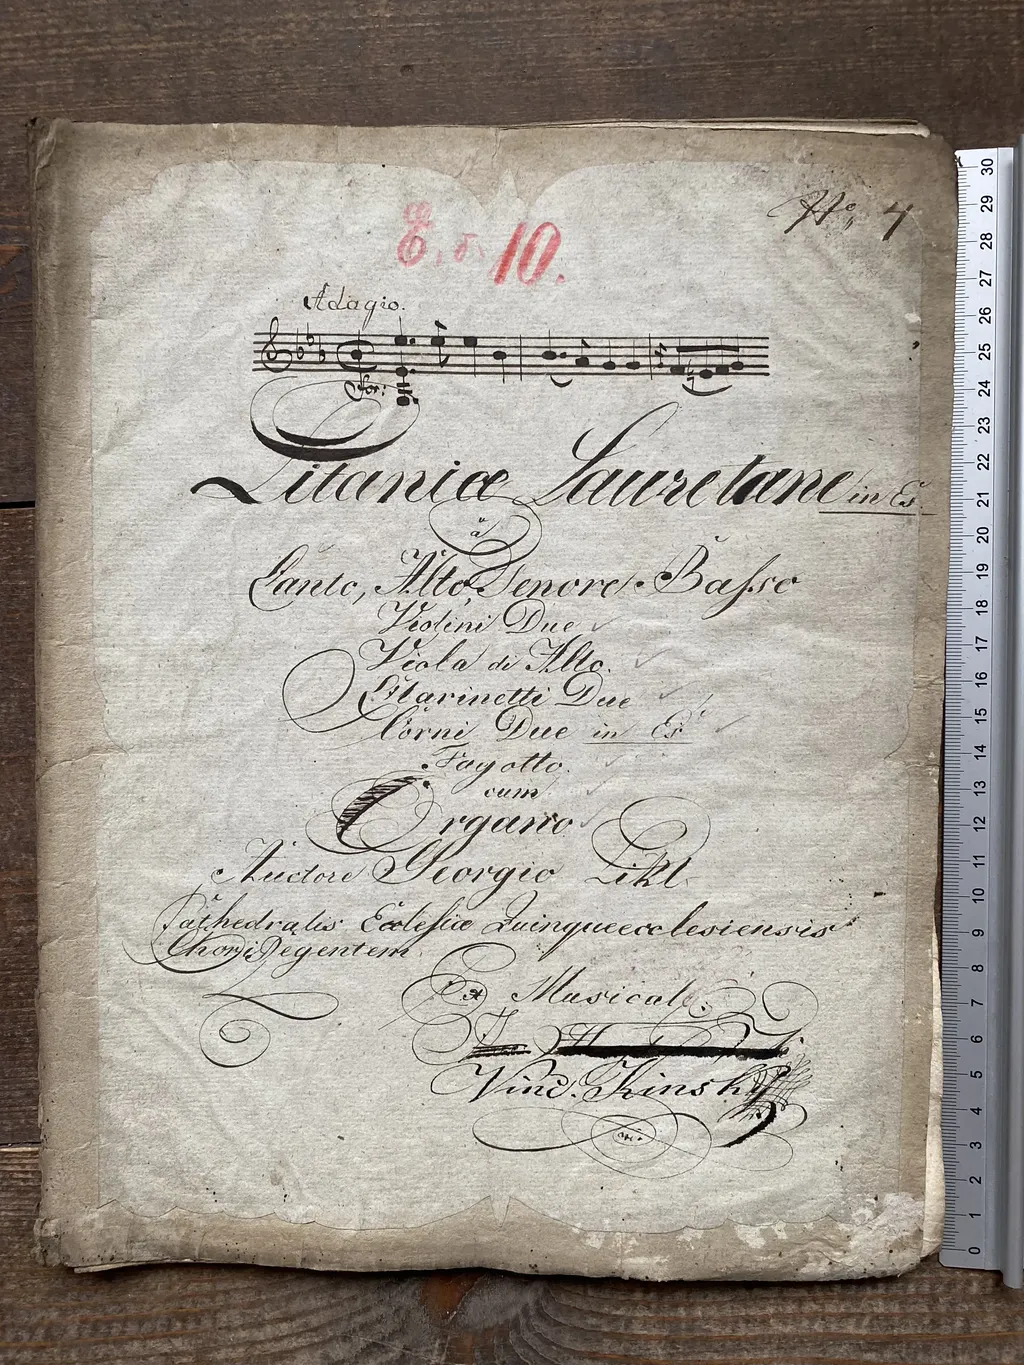 No. 4
E. σ. 10.
Adagio.
for:
Litaniæ Lauretane in Es
a
Canto, Alto, Tenore, Basso
Violini Due
Viola di Alto.
Clarinetti Due
Corni Due in Es
Fagotto.
cum
Organo
Auctore Georgio Likl
Cathedralis Ecclesiæ Quinqueecclesiensis
Chori Regentem.
Ex Musical:
Vinc. Kinsky
30
29
28
27
26
25
24
23
22
21
20
19
18
17
16
15
14
13
12
11
10
9
8
7
6
5
4
3
2
1
0